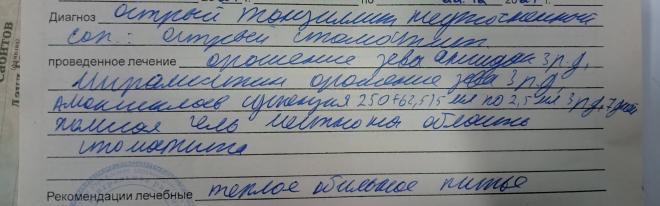 Диагноз острый тонзиллит неуточненный
соп.: острый стоматит
проведенное лечение орошение зева 3 р.д,
Мирамистин орошение зева 3 р.д,
Амоксиклав суспензия 250+62,5/5 мл по 2,5 мл 3 р.д. 7 дней
гель местно на область
стоматита
Рекомендации лечебные теплое обильное питье